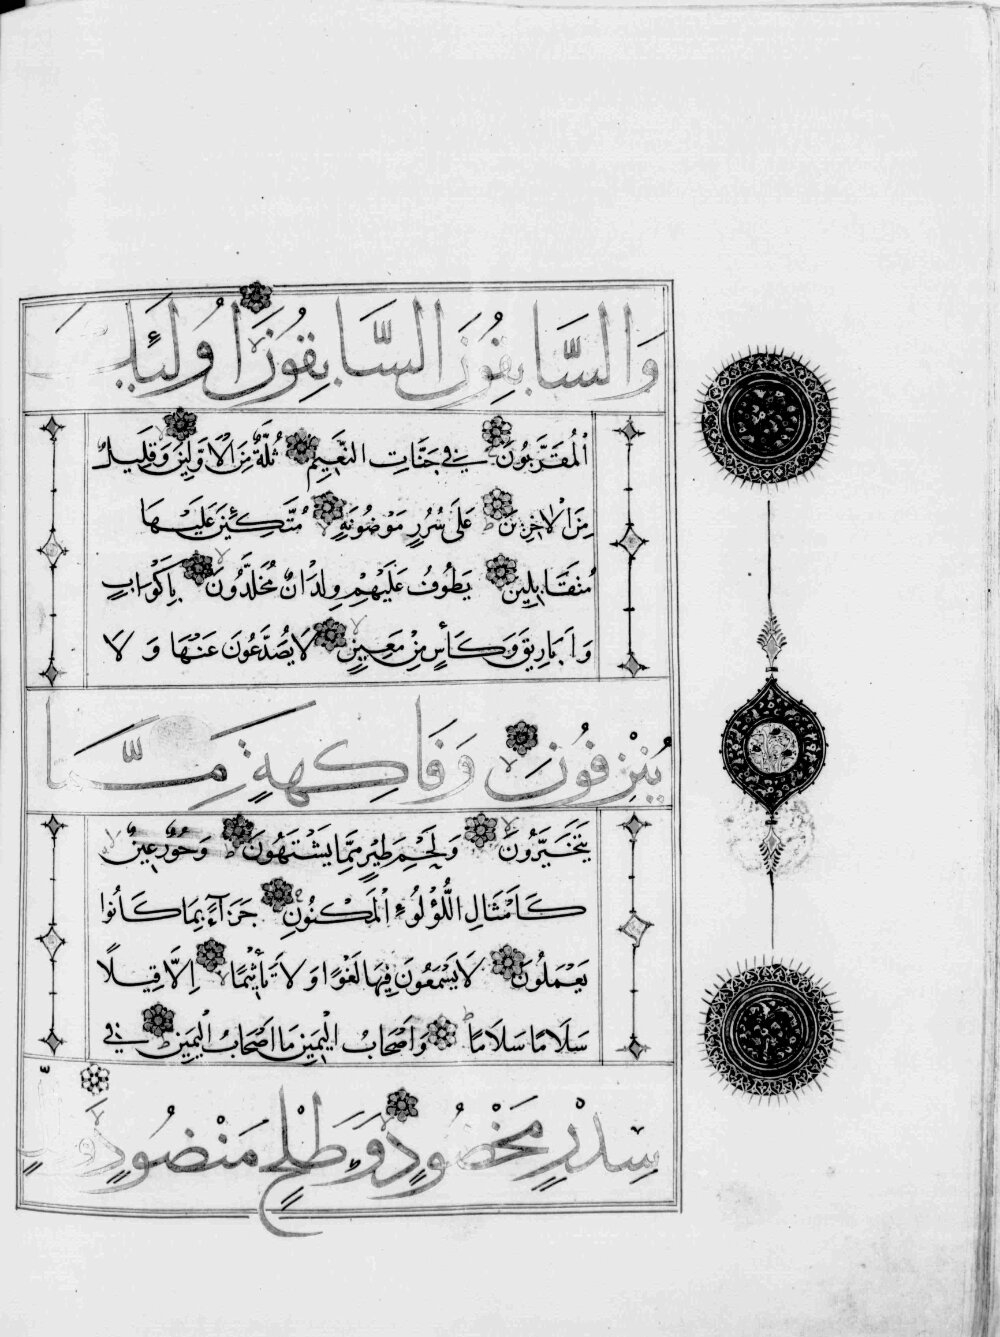 وَالسَّابِقُونَ السَّابِقُونَ اُولَئِكَ
الْمُقَرَّبُونَ فِى جَنَّاتِ النَّعِيمِ ثُلَّةٌ مِنَ الْاَوَّلِينَ وَقَلِيلٌ
مِنَ الْاٰخِرِينَ عَلَى سُرُرٍ مَوْضُونَةٍ مُتَّكِئِينَ عَلَيْهَا
مُتَقَابِلِينَ يَطُوفُ عَلَيْهِمْ وِلْدَانٌ مُخَلَّدُونَ بِاَكْوَابٍ
وَاَبَارِيقَ وَكَأْسٍ مِنْ مَعِينٍ لَا يُصَدَّعُونَ عَنْهَا وَلَا
يُنْزِفُونَ وَفَاكِهَةٍ مِمَّا
يَتَخَيَّرُونَ وَلَحْمِ طَيْرٍ مِمَّا يَشْتَهُونَ وَحُورٌ عِينٌ
كَاَمْثَالِ اللُّؤْلُوءِ الْمَكْنُونِ جَزَآءً بِمَا كَانُوا
يَعْمَلُونَ لَا يَسْمَعُونَ فِيهَا لَغْوًا وَلَا تَأْثِيمًا اِلَّا قِيلًا
سَلَامًا سَلَامًا وَاَصْحَابُ الْيَمِينِ مَا اَصْحَابُ الْيَمِينِ فِى
سِدْرٍ مَخْضُودٍ وَطَلْحٍ مَنْضُودٍ